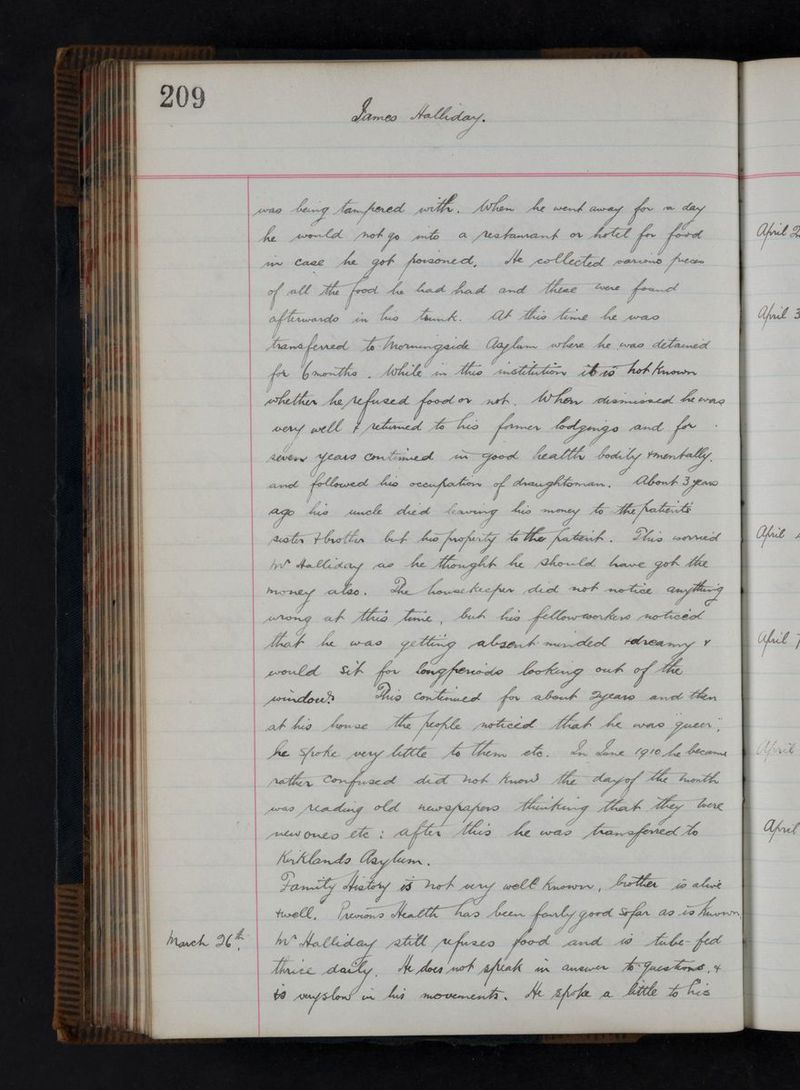 209
James Halliday.
was being tampered with. When he went away for a day
he would not go into a restaurant or hotel for food
in case he got poisoned. He collected various pieces
of all the food he had had and these were found
afterwards in his trunk. At this time he was
transferred to Morningside Asylum where he was detained
for 6 months. While in this institution it is not known
whether he refused food or not. When dismissed he was
very well & returned to his former lodgings and for
seven years continued in good health bodily & mentally.
and followed his occupation of draughtsman. About 3 years
ago his uncle died leaving his money to the patients
sister & brother but his property to the patient. This worried
Mr Halliday as he thought he should have got the
money also. The housekeeper did not notice anything
wrong at this time, but his fellow workers noticed
that he was getting absent minded & dreamy &
would sit for long periods looking out of the
window. This continued for about 2 years and then
at his house the people noticed that he was "queer",
he spoke very little to them etc. In June 1910 he became
rather confused did not know the day of the month
was reading old newspapers thinking that they were
new ones etc: after this he was transferred to
Kirklands Asylum.
Family History is not very well known, brother is alive
& well. Previous Health has been fairly good so far as is known
March 26th. Mr Halliday still refuses food and is tube-fed
thrice daily. He does not speak in answer to questions, &
is very slow in his movements. He spoke a little to his
April 2
April 3
April
April 7
April
April